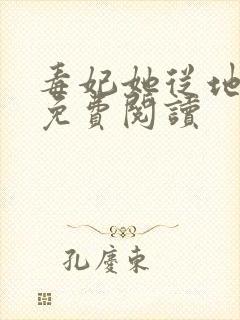 毒妃她从地
免費閱讀
孔慶東